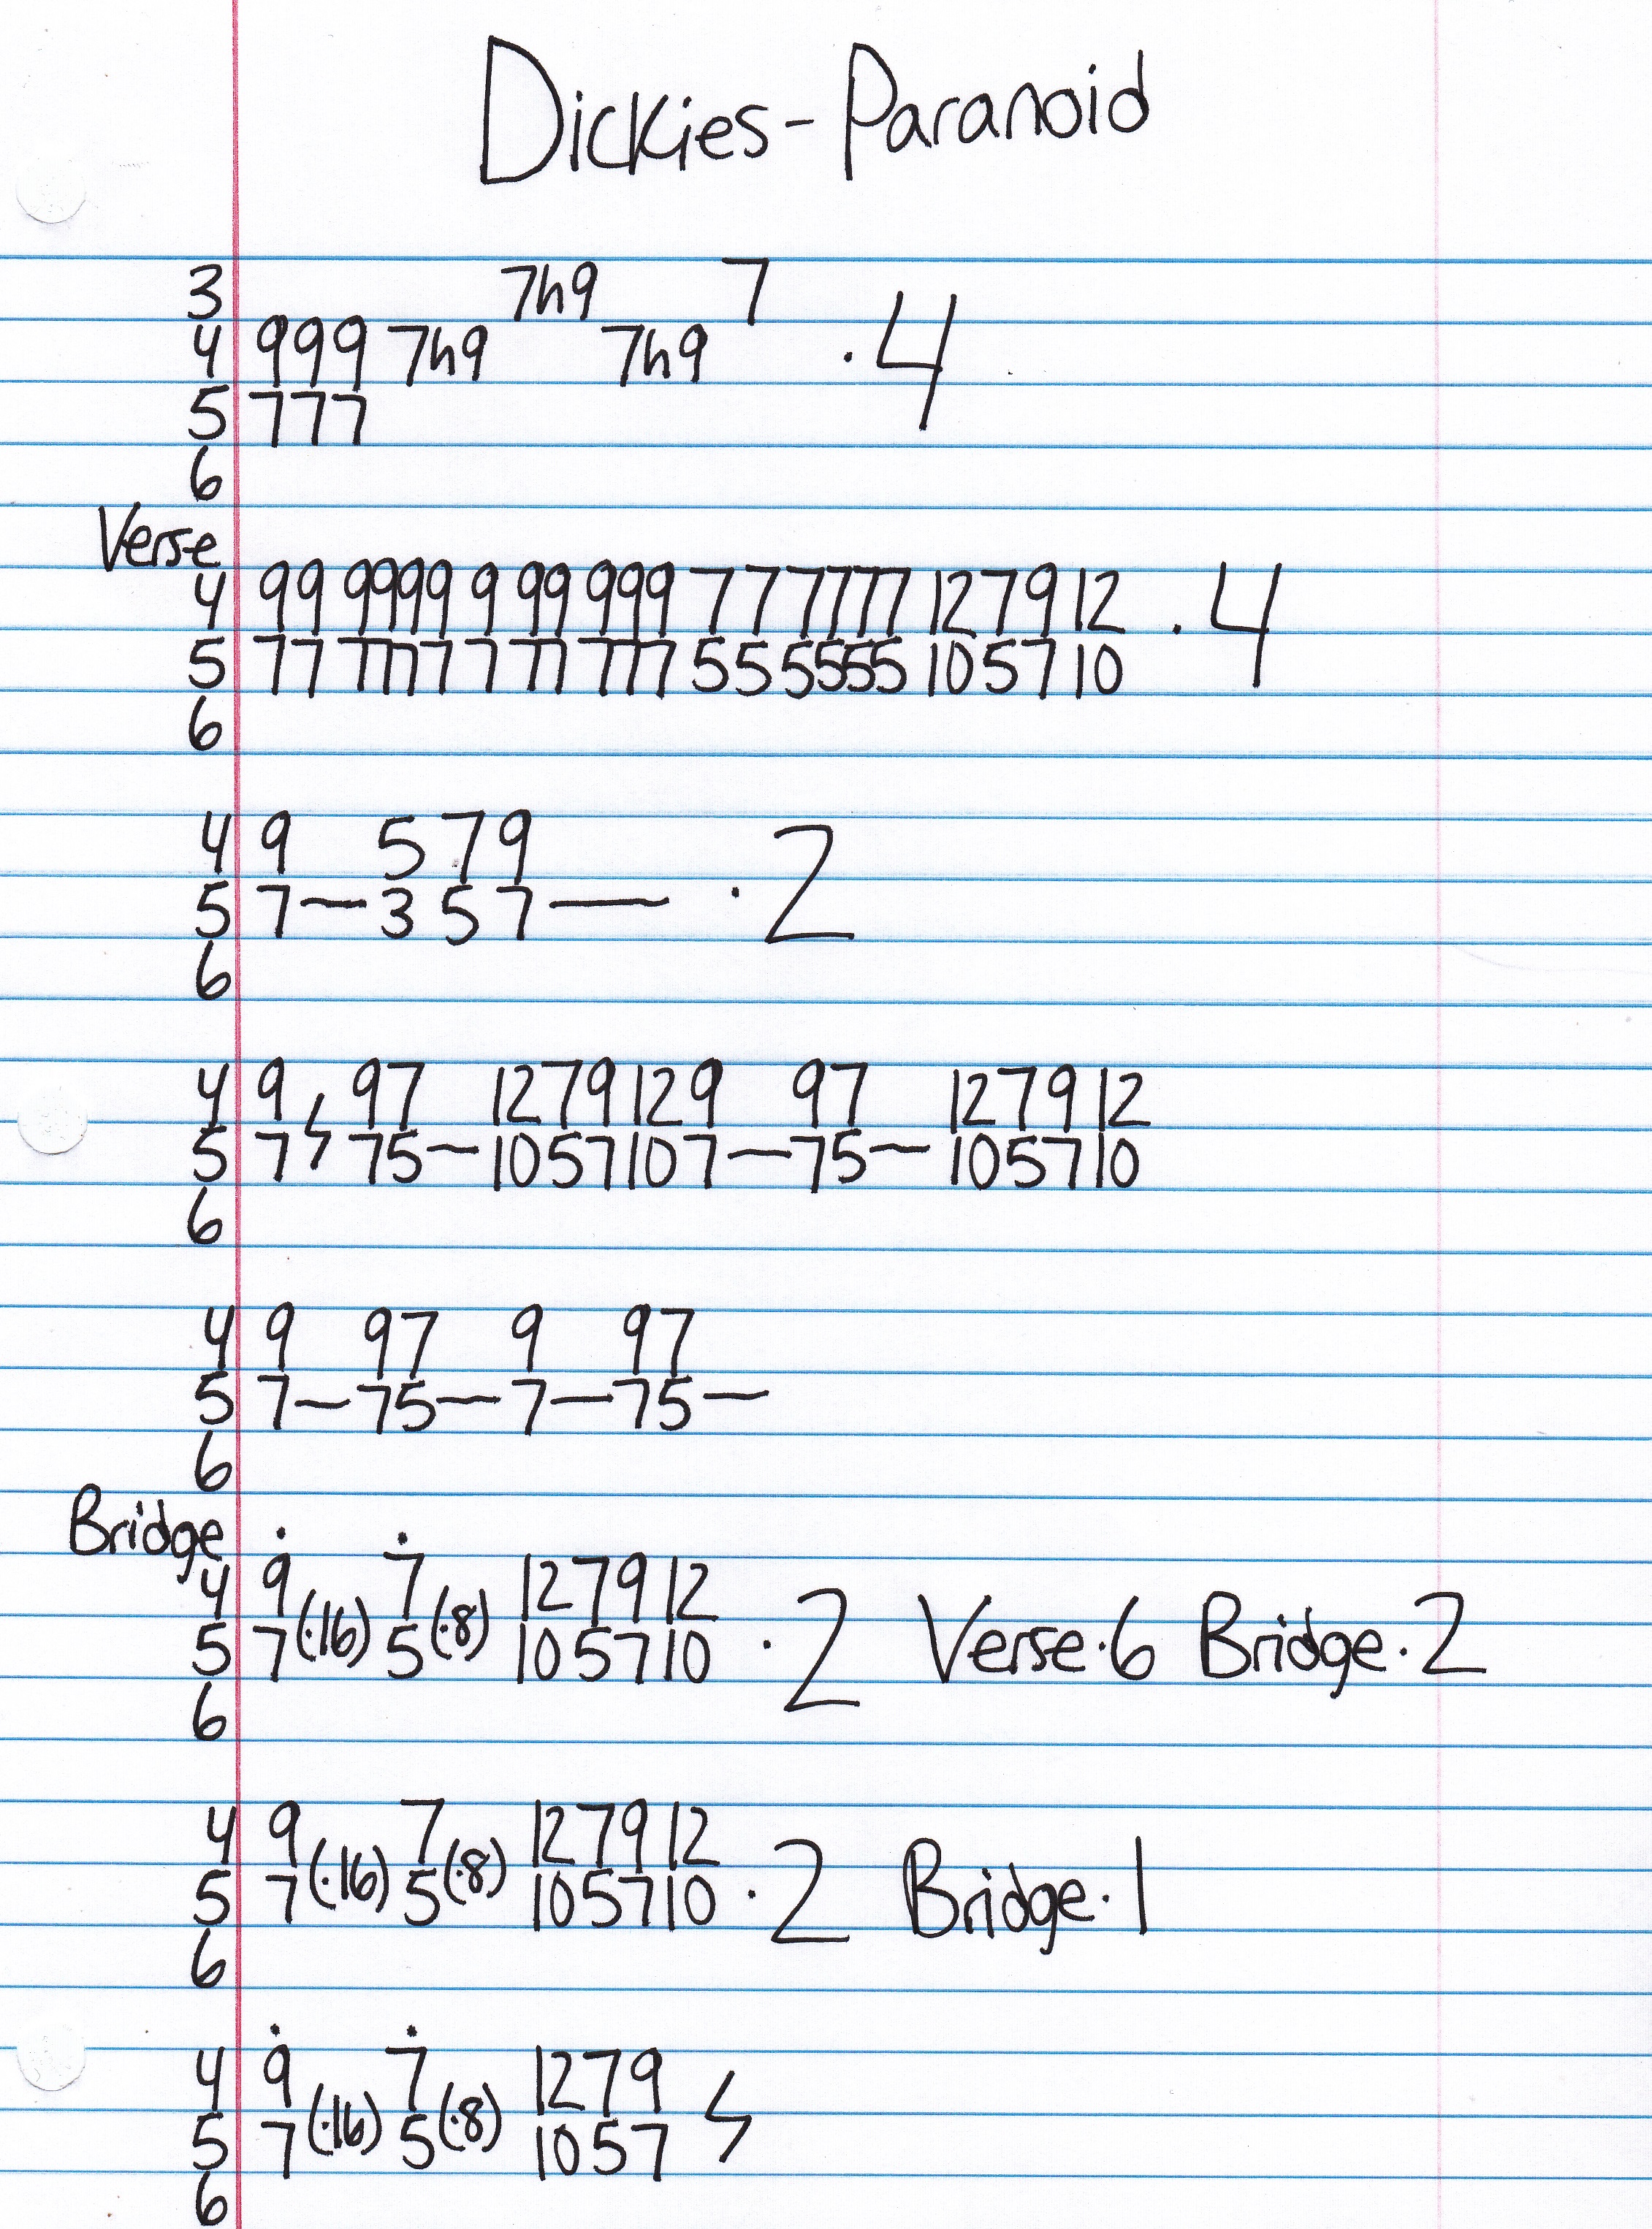 Dickies - Paranoid
3 7h9 7
4 999 7h9 7h9 · 4
5 777
6
Verse
4 99 9999 9 99 999 7 7 7777 12 7 9 12 · 4
5 77 7777 7 77 777 5 5 5555 10 5 7 10
6
4 9 5 7 9 · 2
5 7 — 3 5 7 —
6
4 9 ϟ 9 7 12 7 9 12 9 9 7 12 7 9 12
5 7 7 5 — 10 5 7 10 7 — 7 5 — 10 5 7 10
6
4 9 9 7 9 9 7
5 7 — 7 5 — 7 — 7 5 —
6
Bridge
4 9 (·16) 7 (·8) 12 7 9 12 · 2 Verse · 6 Bridge · 2
5 7 5 10 5 7 10
6
4 9 (·16) 7 (·8) 12 7 9 12 · 2 Bridge · 1
5 7 5 10 5 7 10
6
4 9 (·16) 7 (·8) 12 7 9 ϟ
5 7 5 10 5 7
6